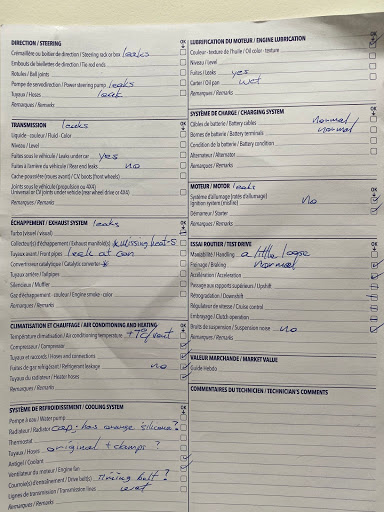 DIRECTION / STEERING
OK
Crémaillère ou boîtier de direction / Steering rack or box leaks
Embouts de biellettes de direction / Tie rod ends
Rotules / Ball joints
Pompe de servodirection / Power steering pump leaks
Tuyaux / Hoses leak
Remarques / Remarks
TRANSMISSION leaks
OK
Liquide - couleur / Fluid - Color
Niveau / Level
Fuites sous le véhicule / Leaks under car yes
Fuites à l'arrière du véhicule / Rear end leaks no
Cache-poussière (roues avant) / C/V boots (front wheels)
Joints sous le véhicule (propulsion ou 4X4)
Universal or CV joints under vehicle (rear wheel drive or 4X4)
Remarques / Remarks
ÉCHAPPEMENT / EXHAUST SYSTEM leaks
OK
Turbo (visuel / visual)
Collecteur(s) d'échappement / Exhaust manifold(s) * Missing heat-S
Tuyaux avant / Front pipes leak at con
Convertisseur catalytique / Catalytic converter *
Tuyaux arrière / Tailpipes
Silencieux / Muffler
Gaz d'échappement - couleur / Engine smoke - color
Remarques / Remarks
CLIMATISATION ET CHAUFFAGE / AIR CONDITIONING AND HEATING
OK
Température climatisation / Air conditioning temperature
Compresseur / Compressor
Tuyaux et raccords / Hoses and connections
Fuites de gaz réfrigérant / Refrigerant leakage no
Tuyaux du radiateur / Heater hoses
Remarques / Remarks
SYSTÈME DE REFROIDISSEMENT / COOLING SYSTEM
OK
Pompe à eau / Water pump
Radiateur / Radiator cap, has orange silicone?
Thermostat
Tuyaux / Hoses original + clamps ?
Antigel / Coolant
Ventilateur du moteur / Engine fan
Courroie(s) d'entraînement / Drive belt(s) Timing belt?
Lignes de transmission / Transmission lines
Remarques / Remarks
LUBRIFICATION DU MOTEUR / ENGINE LUBRICATION
OK
Couleur - texture de l'huile / Oil color - texture
Niveau / Level
Fuites / Leaks yes
Carter / Oil pan wet
Remarques / Remarks
SYSTÈME DE CHARGE / CHARGING SYSTEM
OK
Câbles de batterie / Battery cables normal
Bornes de batterie / Battery terminals normal
Condition de la batterie / Battery condition
Alternateur / Alternator
Remarques / Remarks
MOTEUR / MOTOR leaks
OK
Système d'allumage (ratés d'allumage)
Ignition system (misfire) No
Démarreur / Starter
Remarques / Remarks
ESSAI ROUTIER / TEST DRIVE
OK
Maniabilité / Handling a little loose
Freinage / Braking normal
Accélération / Acceleration
Passage aux rapports supérieurs / Upshift
Rétrogradation / Downshift
Régulateur de vitesse / Cruise control
Embrayage / Clutch operation
Bruits de suspension / Suspension noise no
Remarques / Remarks
VALEUR MARCHANDE / MARKET VALUE
Guide Hebdo
COMMENTAIRES DU TECHNICIEN / TECHNICIAN'S COMMENTS